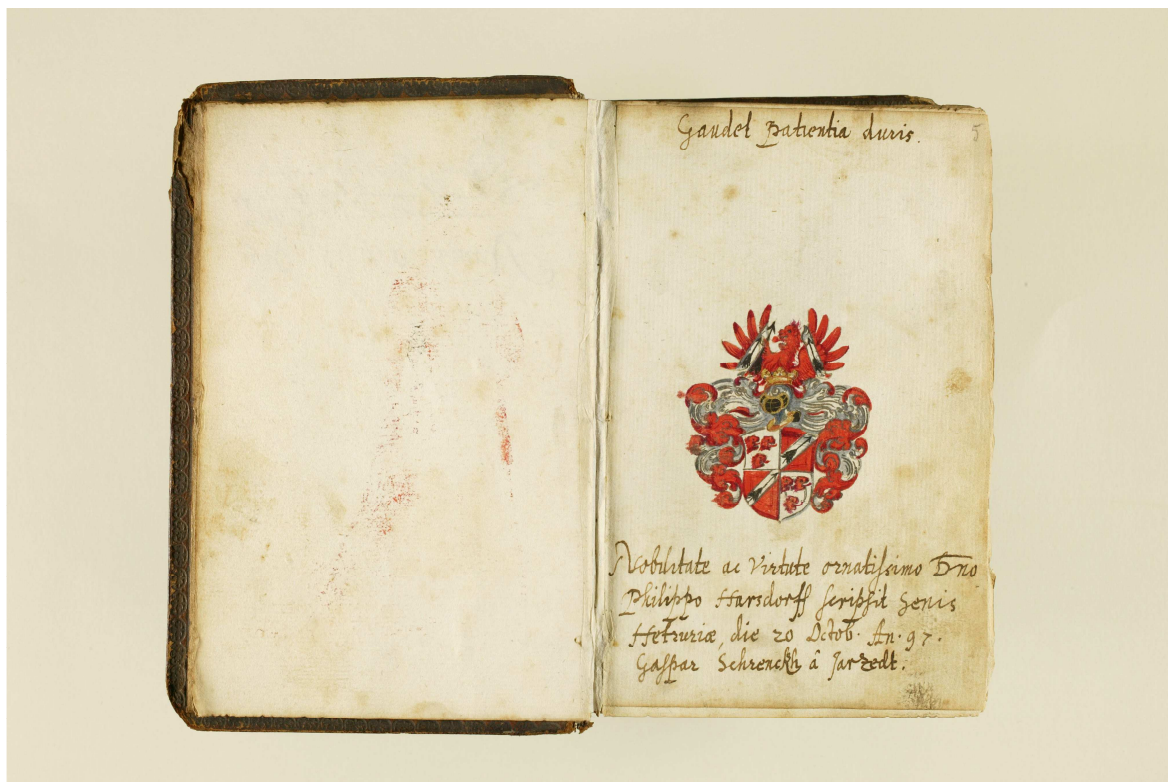 Gaudet patientia duris.
5
Nobilitate ac Virtute ornatissimo Dno
Philippo Harsdorff scripsit Senis
Hetruriæ, die 20 Octob. An. 97.
Gaspar Schrenckh â Jarzedt.